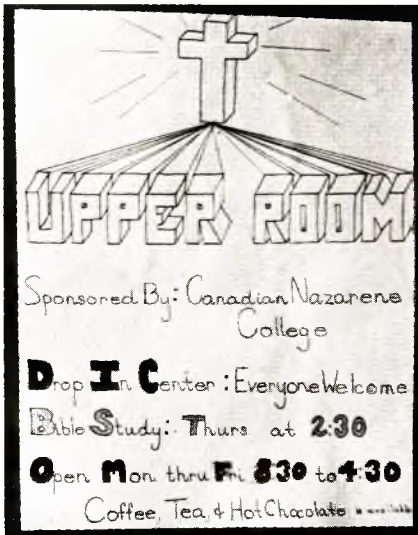 UPPER ROOM
Sponsored By: Canadian Nazarene
College
Drop In Center: Everyone Welcome
Bible Study: Thurs at 2:30
Open Mon thru Fri 830 to 4:30
Coffee, Tea, & Hot Chocolate is available